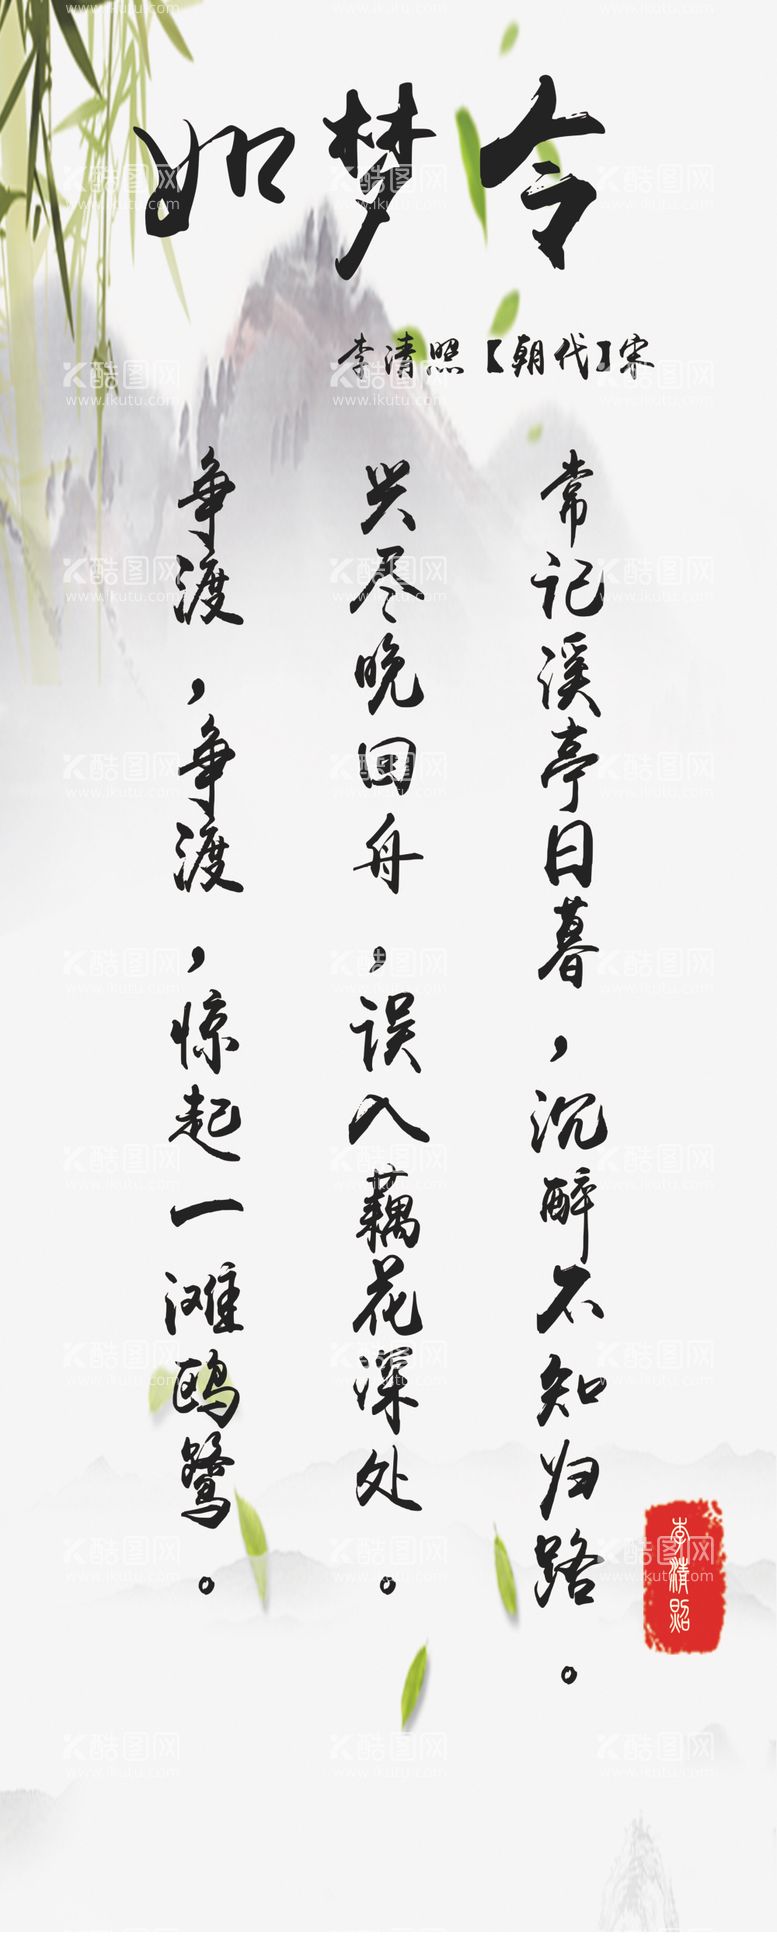 如梦令
李清照【朝代】宋
常记溪亭日暮，沉醉不知归路。
兴尽晚回舟，误入藕花深处。
争渡，争渡，惊起一滩鸥鹭。
李清照
酷图网
www.ikutu.com